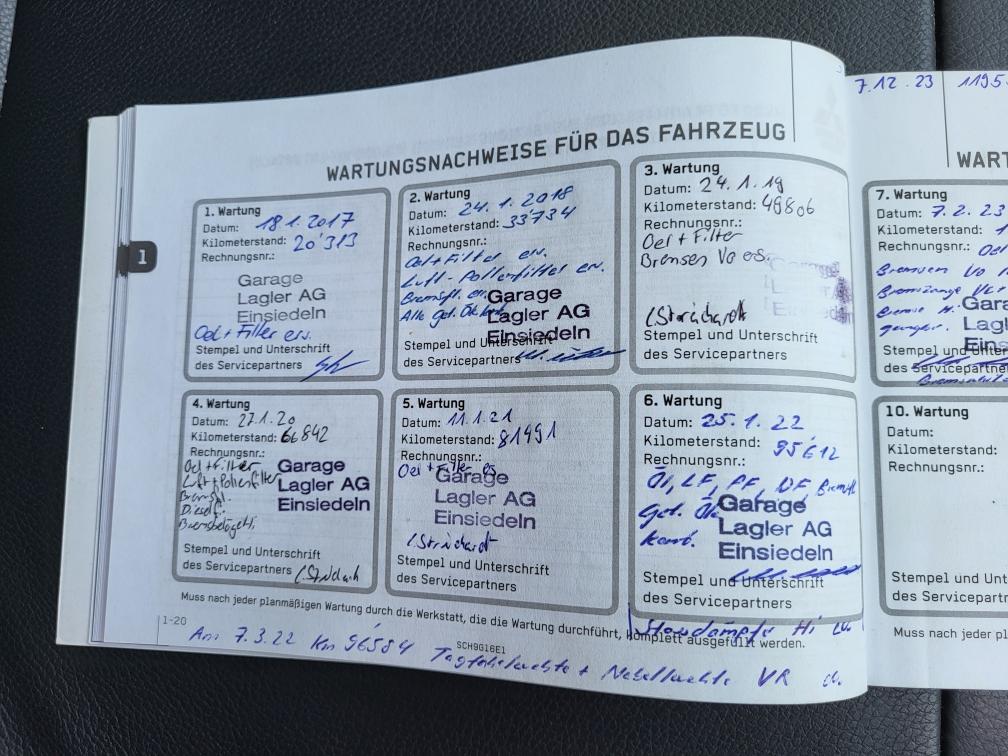 7.12.23 1195
WARTUNGSNACHWEISE FÜR DAS FAHRZEUG
WART
1
1. Wartung
Datum: 18.1.2017
Kilometerstand: 20'313
Rechnungsnr.:
Garage
Lagler AG
Einsiedeln
Oel + Filter ers.
Stempel und Unterschrift
des Servicepartners
2. Wartung
Datum: 24.1.2018
Kilometerstand: 33734
Rechnungsnr.:
Oel + Filter ers.
Luft-Pollenfilter ers.
Bremsfl. ers.
Garage
Lagler AG
Einsiedeln
Stempel und Unterschrift
des Servicepartners
3. Wartung
Datum: 24.1.19
Kilometerstand: 49806
Rechnungsnr.:
Oel + Filter
Bremsen Vo ers.
Stempel und Unterschrift
des Servicepartners
7. Wartung
Datum: 7.2.23
Kilometerstand: 1
Rechnungsnr.: Oel
Bremsen Vo
Gara
Lagl
Eins
Stempel und Unter
des Servicepartners
4. Wartung
Datum: 27.1.20
Kilometerstand: 66842
Rechnungsnr.:
Oel + Filter
Luft + Pollenfilter
Bremsfl.
Diesel
Garage
Lagler AG
Einsiedeln
Stempel und Unterschrift
des Servicepartners
5. Wartung
Datum: 11.1.21
Kilometerstand: 81491
Rechnungsnr.:
Oel + Filter ers
Garage
Lagler AG
Einsiedeln
Stempel und Unterschrift
des Servicepartners
6. Wartung
Datum: 25.1.22
Kilometerstand: 95'612
Rechnungsnr.:
Öl, LF, PF, DF, Bremsfl.
Garage
Lagler AG
Einsiedeln
Stempel und Unterschrift
des Servicepartners
10. Wartung
Datum:
Kilometerstand:
Rechnungsnr.:
Stempel und Unt
des Servicepartn
Muss nach jeder planmäßigen Wartung durch die Werkstatt, die die Wartung durchführt, komplett ausgefüllt werden.
Muss nach jeder pl
1-20
SCH9G16E1
Stossdämpfer Hi
Am 7.3.22 Km 96584 Tagfahrleuchte + Nebelleuchte VR